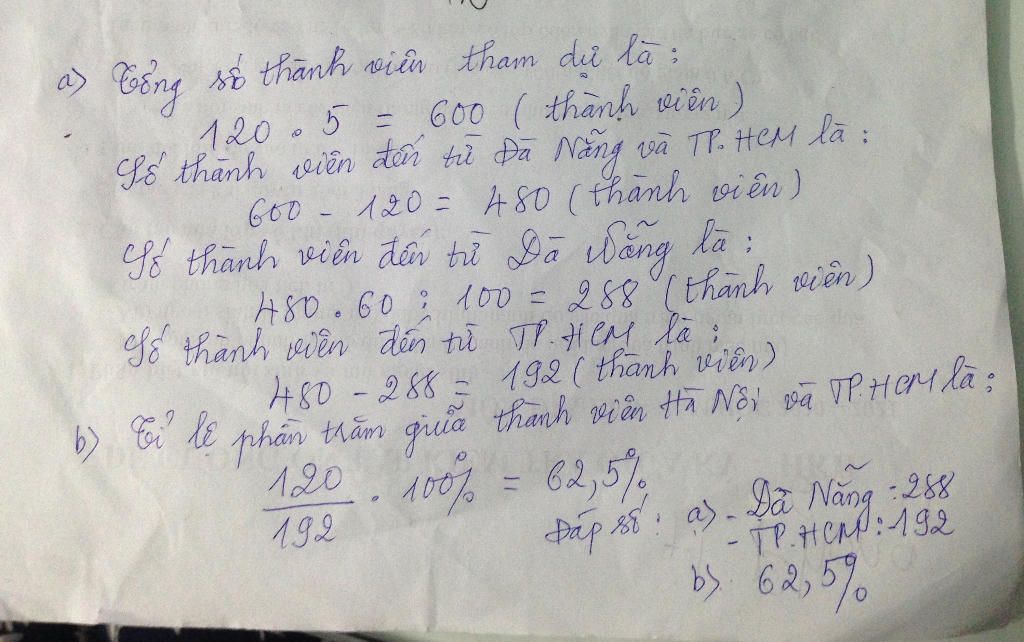 a) Tổng số thành viên tham dự là:
120 . 5 = 600 (thành viên)
Số thành viên đến từ Đà Nẵng và TP.HCM là:
600 - 120 = 480 (thành viên)
Số thành viên đến từ Đà Nẵng là:
480 . 60 : 100 = 288 (thành viên)
Số thành viên đến từ TP.HCM là:
480 - 288 = 192 (thành viên)
b) Tỉ lệ phần trăm giữa thành viên Hà Nội và TP.HCM là:
120/192 . 100% = 62,5%
Đáp số: a) - Đà Nẵng: 288
- TP.HCM: 192
b) 62,5%